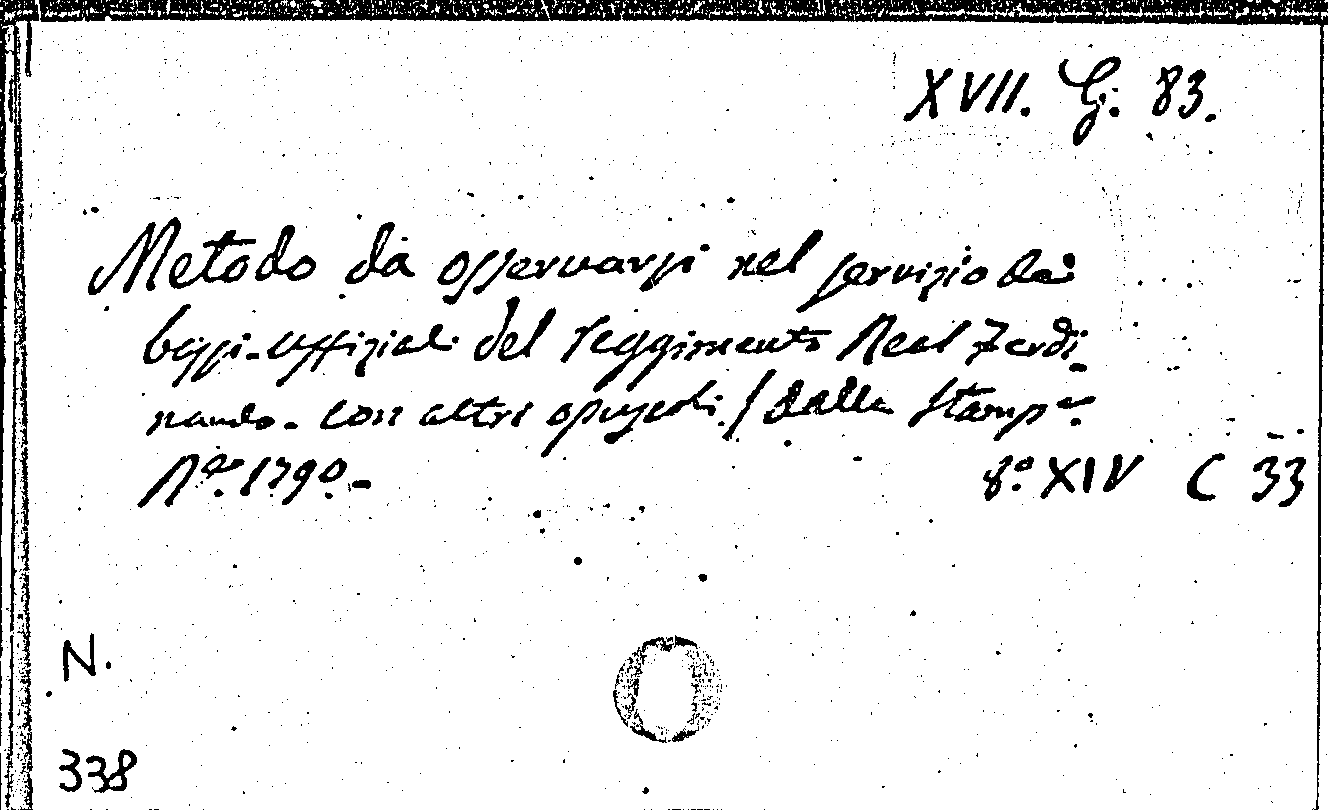 XVII. G. 83.
Metodo da osservarsi nel servizio da'
bassi-uffiziali del reggimento Real Ferdi
nando. con altri opuscoli./dalla Stamp.ª
N.ª 1790.-
8.º XIV C 33
N.
338